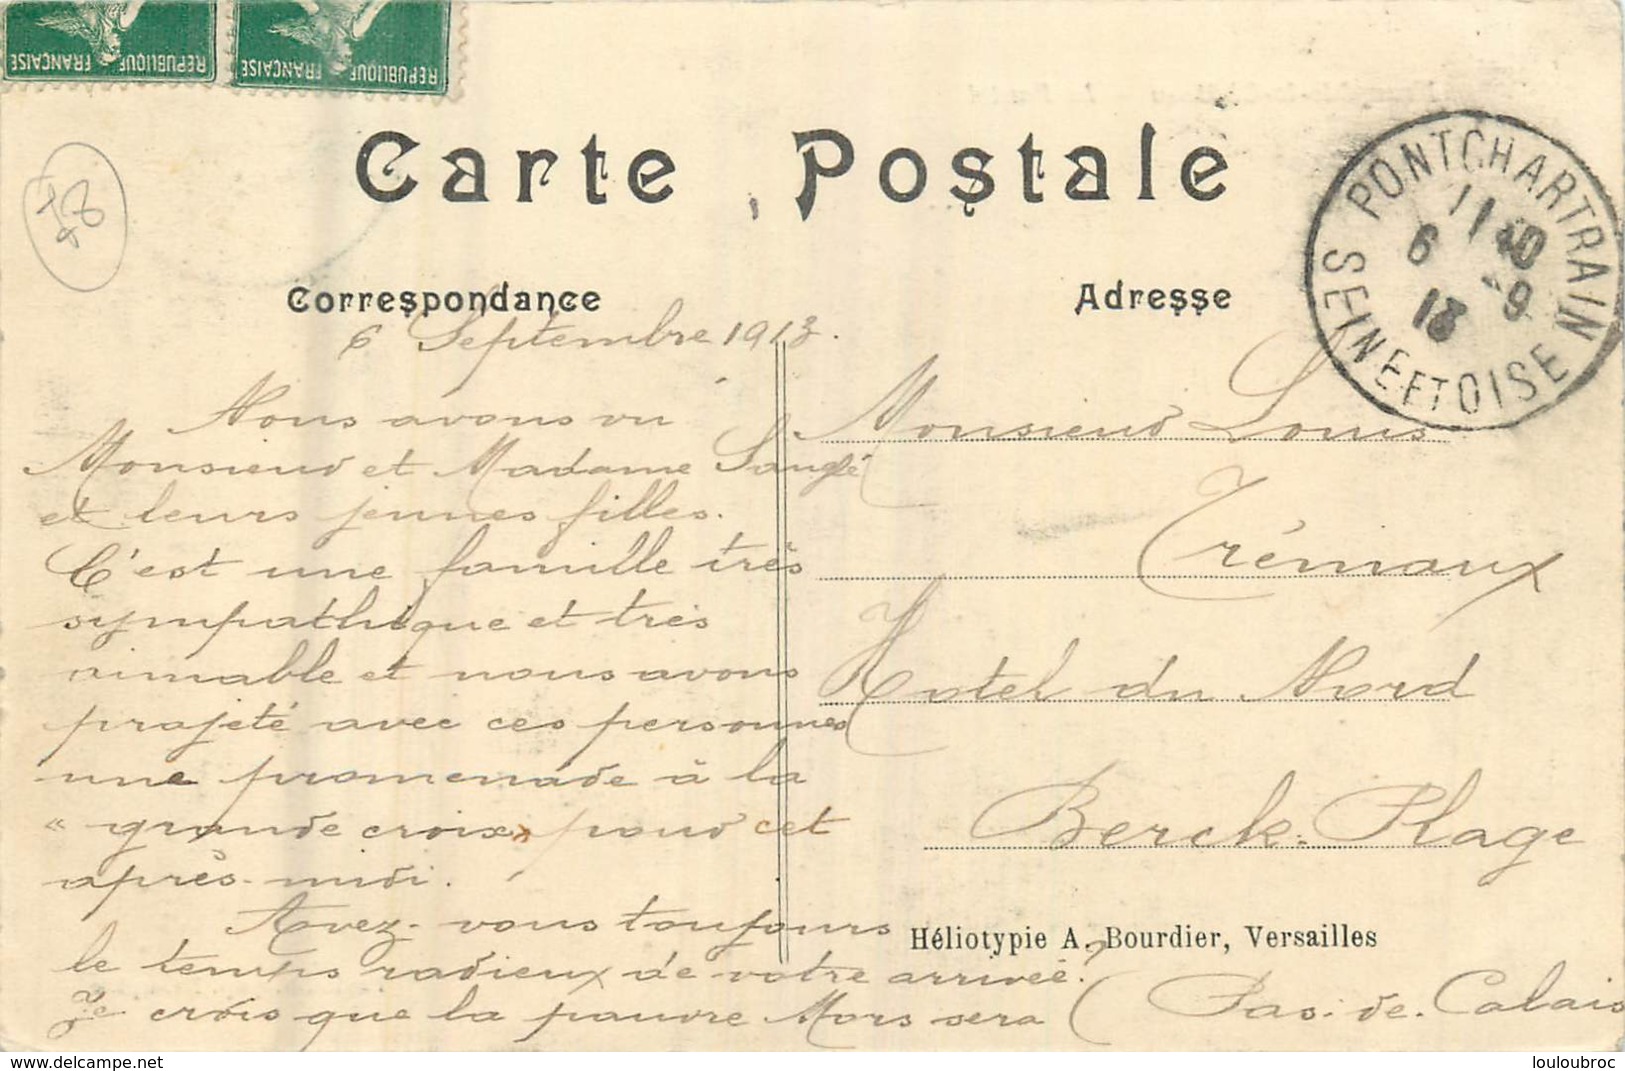 REPUBLIQUE FRANÇAISE
REPUBLIQUE FRANÇAISE
78
Carte Postale
PONTCHARTRAIN
11 40
6 -9
13
SEINE ET OISE
Correspondance
Adresse
6 Septembre 1913.
Nous avons vu
Monsieur et Madame Sanglé
et leurs jeunes filles.
C'est une famille très
sympathique et très
aimable et nous avons
projeté avec ces personnes
une promenade à la
« grande croix » pour cet
après-midi.
Avez-vous toujours
le temps radieux de votre arrivée ?
Je crois que la pauvre Mors sera
Monsieur Louis
Trémaux
Hotel du Nord
Berck-Plage
Héliotypie A. Bourdier, Versailles
(Pas-de-Calais
https://www.delcampe.net
louloubroc